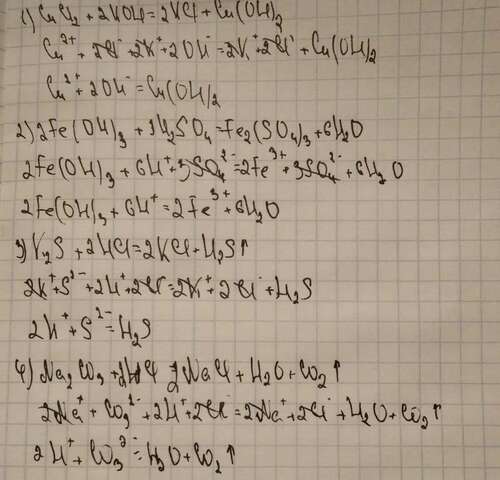 1) CuCl₂ + 2KOH = 2KCl + Cu(OH)₂
Cu²⁺ + 2Cl⁻ + 2K⁺ + 2OH⁻ = 2K⁺ + 2Cl⁻ + Cu(OH)₂
Cu²⁺ + 2OH⁻ = Cu(OH)₂
2) 2Fe(OH)₃ + 3H₂SO₄ = Fe₂(SO₄)₃ + 6H₂O
2Fe(OH)₃ + 6H⁺ + 3SO₄²⁻ = 2Fe³⁺ + 3SO₄²⁻ + 6H₂O
2Fe(OH)₃ + 6H⁺ = 2Fe³⁺ + 6H₂O
3) K₂S + 2HCl = 2KCl + H₂S↑
2K⁺ + S²⁻ + 2H⁺ + 2Cl⁻ = 2K⁺ + 2Cl⁻ + H₂S
2H⁺ + S²⁻ = H₂S
4) Na₂CO₃ + 2HCl = 2NaCl + H₂O + CO₂↑
2Na⁺ + CO₃²⁻ + 2H⁺ + 2Cl⁻ = 2Na⁺ + 2Cl⁻ + H₂O + CO₂↑
2H⁺ + CO₃²⁻ = H₂O + CO₂↑